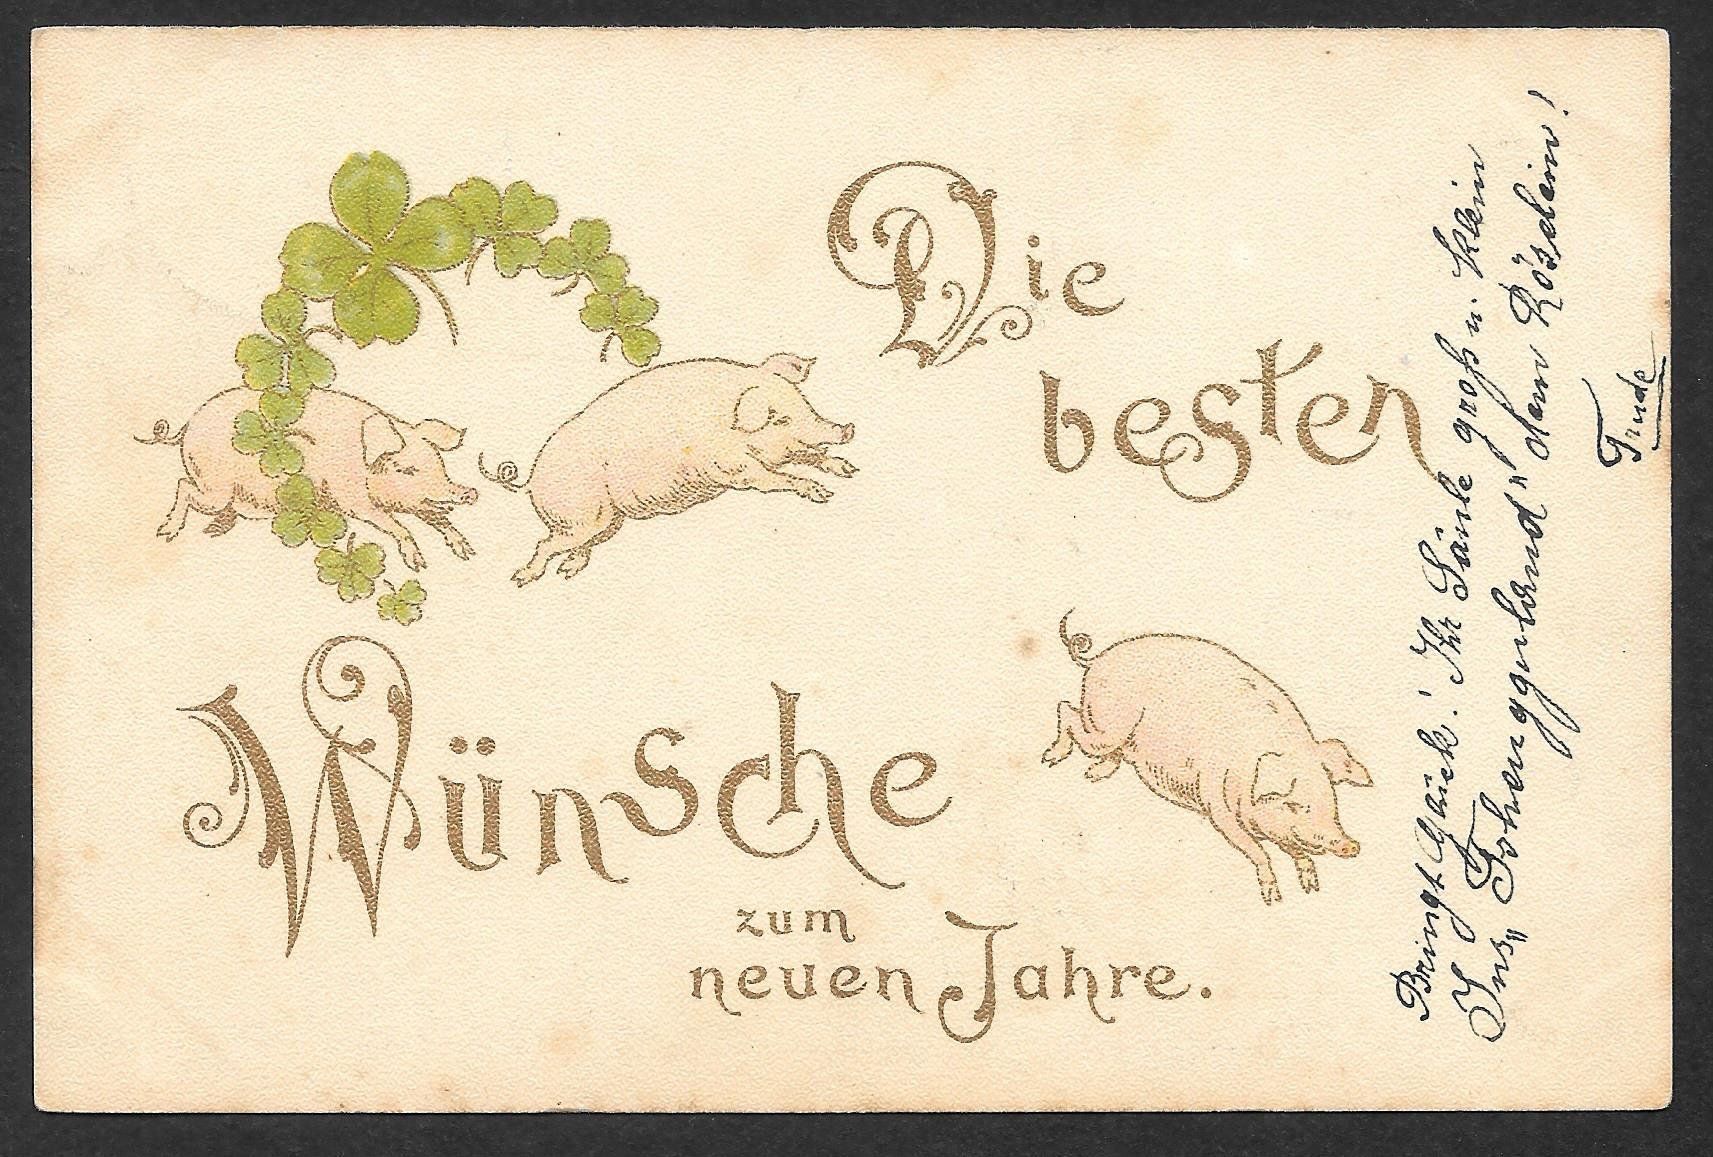 Die
besten
Wünsche
zum
neuen Jahre.
Bringt Glück! Ihr Säule groß u. klein
Ins „Hohenggenland" dem Röselein!
Trude